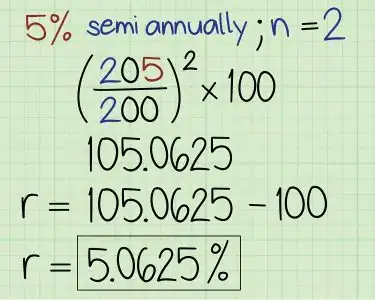 5% semi annually ; n = 2
(205/200)² × 100
105.0625
r = 105.0625 − 100
r = 5.0625%